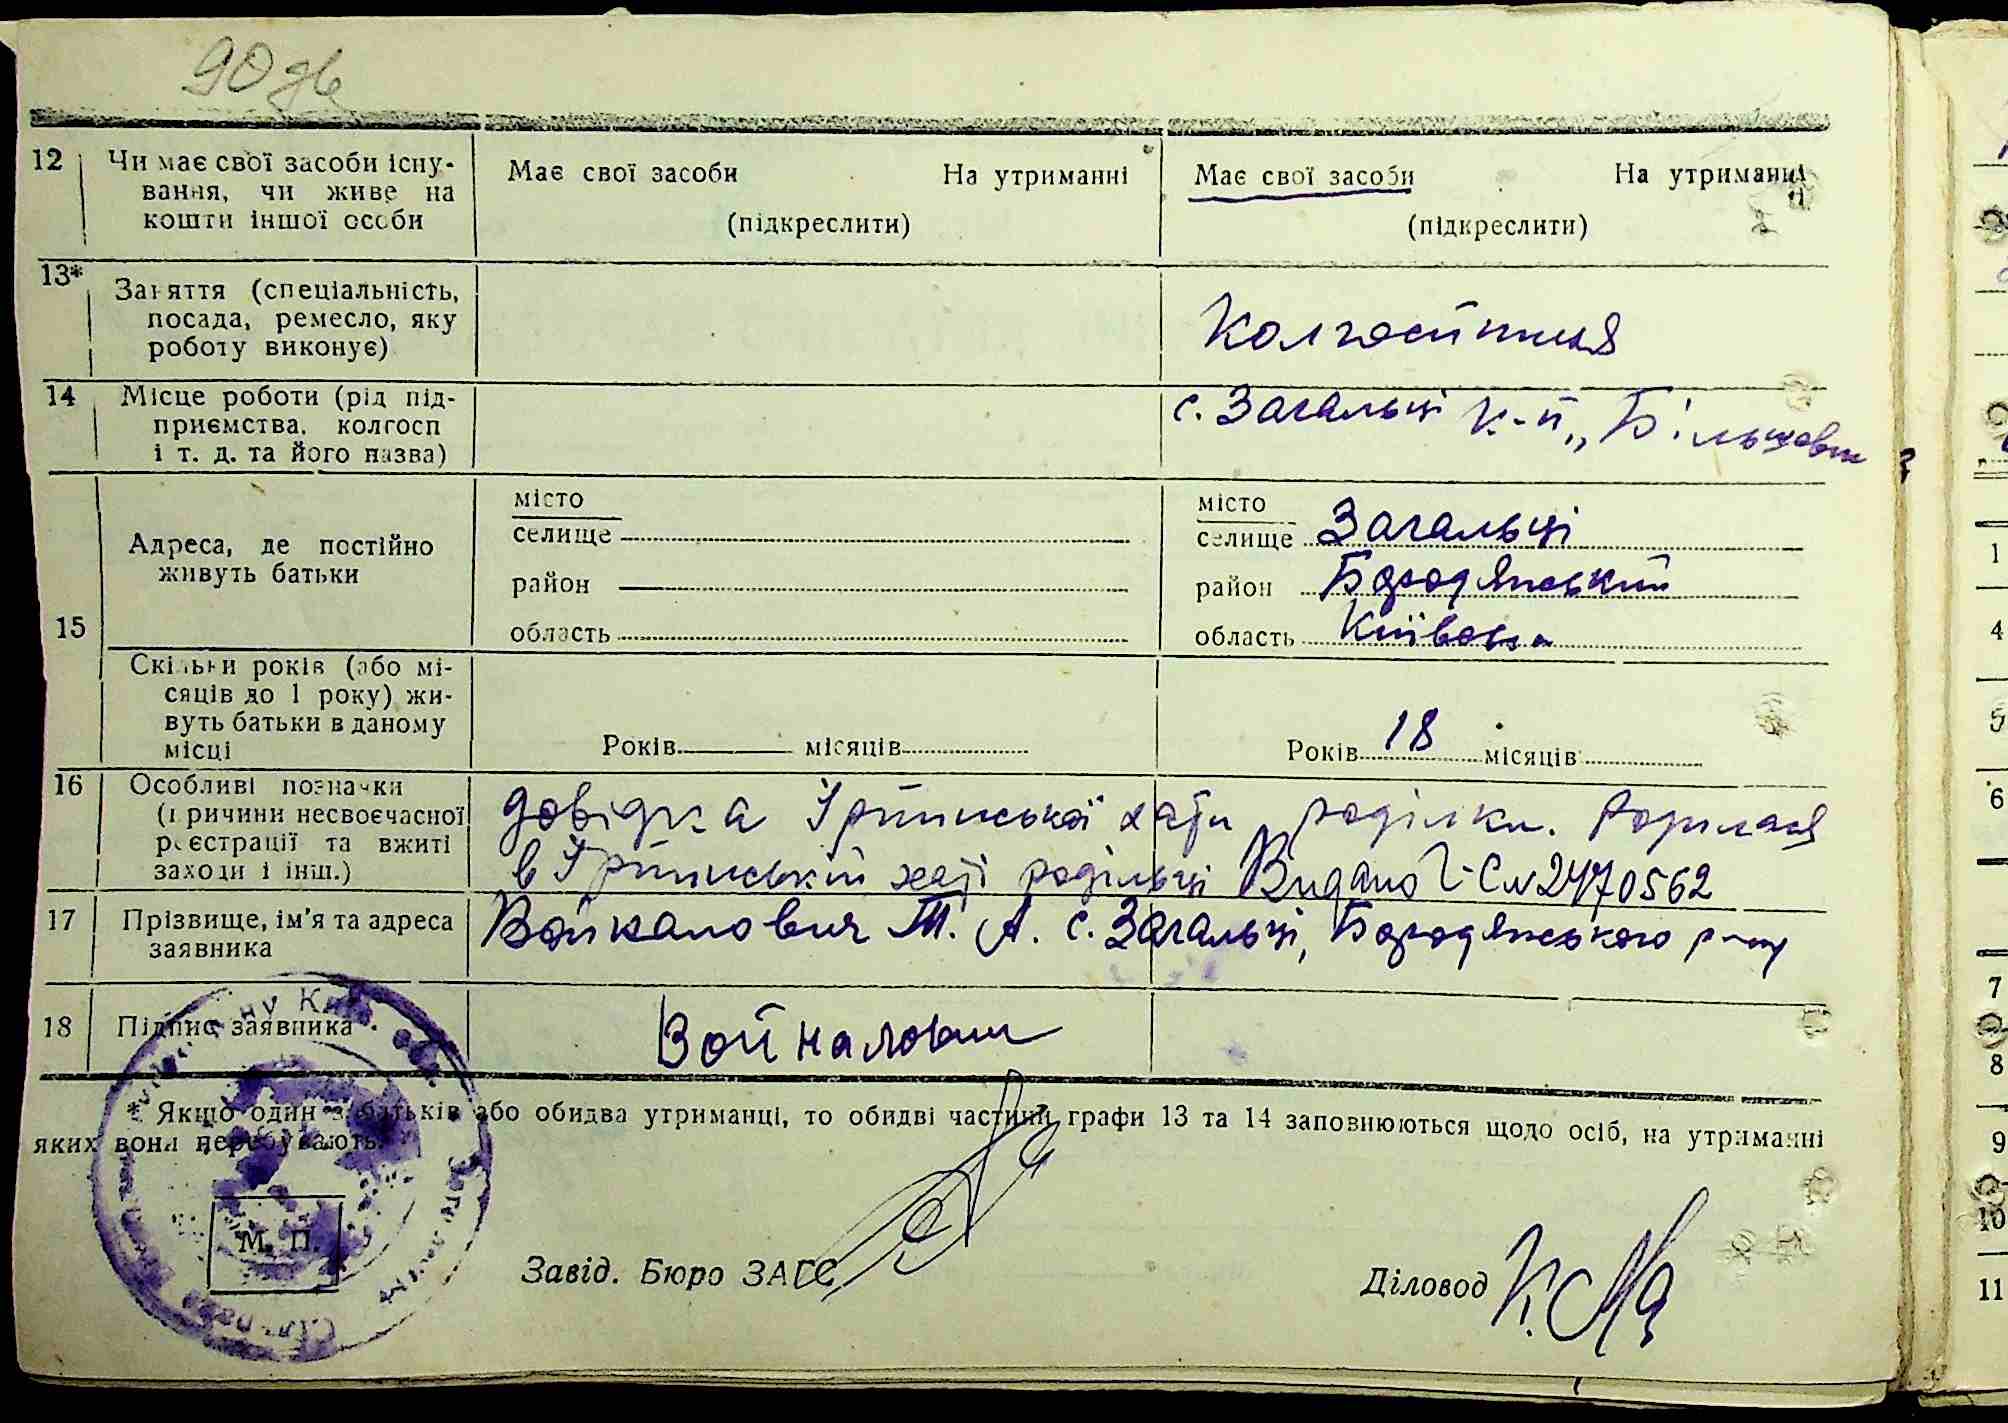 90
12 Чи має свої засоби існу-
вання, чи живе на
кошти іншої особи
Має свої засоби На утриманні
(підкреслити)
Має свої засоби На утриманні
(підкреслити)
13* Заняття (спеціальність,
посада, ремесло, яку
роботу виконує)
Колгоспниця
14 Місце роботи (рід під-
приємства, колгосп
і т. д. та його назва)
с. Загальці к-п „Більшовик
15 Адреса, де постійно
живуть батьки
місто
селище
район
область
місто
селище Загальці
район Бородянський
область Київська
Скільки років (або мі-
сяців до 1 року) жи-
вуть батьки в даному
місці
Років місяців
Років 18 місяців
16 Особливі позначки
(причини несвоєчасної
реєстрації та вжиті
заходи і інш.)
довідка Ірпинської хати роділки. Родилася
в Ірпинській хаті роділці Видано І-С № 2470562
17 Прізвище, ім'я та адреса
заявника
Войналович М. А. с. Загальці, Бородянського р-ну
18 Підпис заявника
Войналович
* Якщо один з батьків або обидва утриманці, то обидві частини графи 13 та 14 заповнюються щодо осіб, на утриманні
яких вони перебувають.
М. П.
Завід. Бюро ЗАГС
Діловод
1
4
5
6
7
8
9
10
11